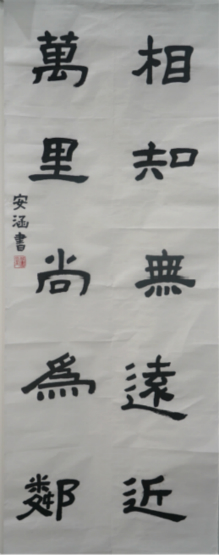 相知無遠近
萬里尚為鄰
安涵書